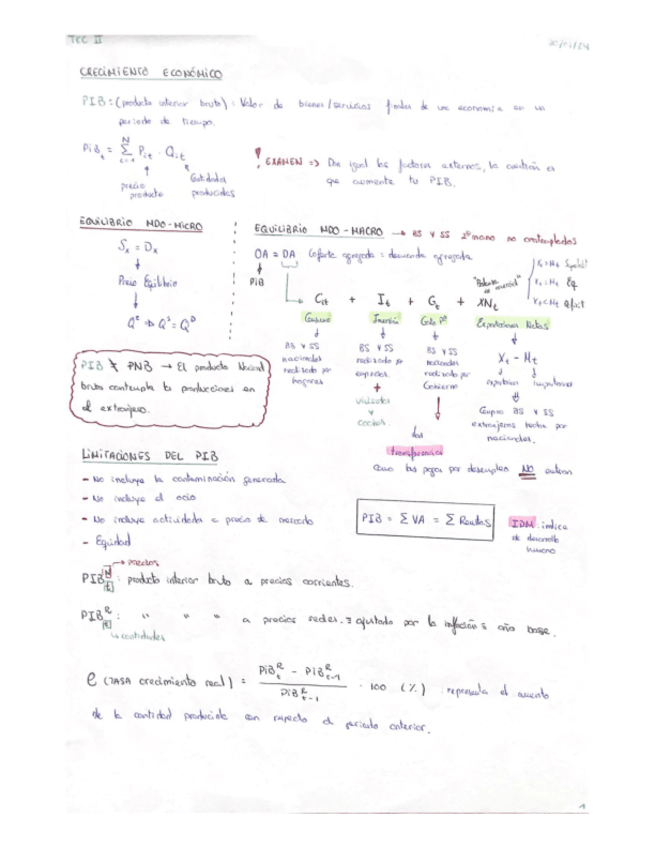 TEC II
CRECIMIENTO ECONÓMICO
PIB: (producto interior bruto): Valor de bienes/servicios finales de una economía en un
período de tiempo.
PiB_t = Σ_{i=1}^{N} P_{it} · Q_{it}
precio producto
Cantidades producidas
! EXAMEN => Da igual los factores externos, la cuestión es
que aumente tu PIB.
EQUILIBRIO MDO-MICRO
S_x = D_x
Precio Equilibrio
Q^e => Q^S = Q^D
EQUILIBRIO MDO-MACRO → BS Y SS 2ª mano no contemplados
OA = DA (oferta agregada = demanda agregada
PiB
C_it + I_t + G_t + XN_t
X_t = M_t Eq
Consumo
Inversión
Gasto Pº
Exportaciones Netas
BS Y SS
nacionales
realizado por
hogares
BS Y SS
realizado por
empresas
+
viviendas
y
coches.
BS Y SS
nacionales
realizado por
Gobierno
X_t - M_t
Compra BS Y SS
extranjeros hecha por
nacionales.
las
transferencias
como los pagos por desempleo NO entran
PIB ≠ PNB → El producto Nacional
bruto contempla la producciones en
el extranjero.
LIMITACIONES DEL PIB
- No incluye la contaminación generada
- No incluye el ocio
- No incluye actividades a precio de mercado
- Equidad
PIB = Σ VA = Σ Rentas
IDM: índice
de desarrollo
humano
→ precios
PIB^N_t : producto interior bruto a precios corrientes.
PIB^R_t : " " " a precios reales. ajustado por la inflación año base.
↳ cantidades
e (TASA crecimiento real) = (PiB^R_t - PiB^R_{t-1}) / PiB^R_{t-1} · 100 (%) : representa el aumento
de la cantidad producida con respecto al período anterior.
1